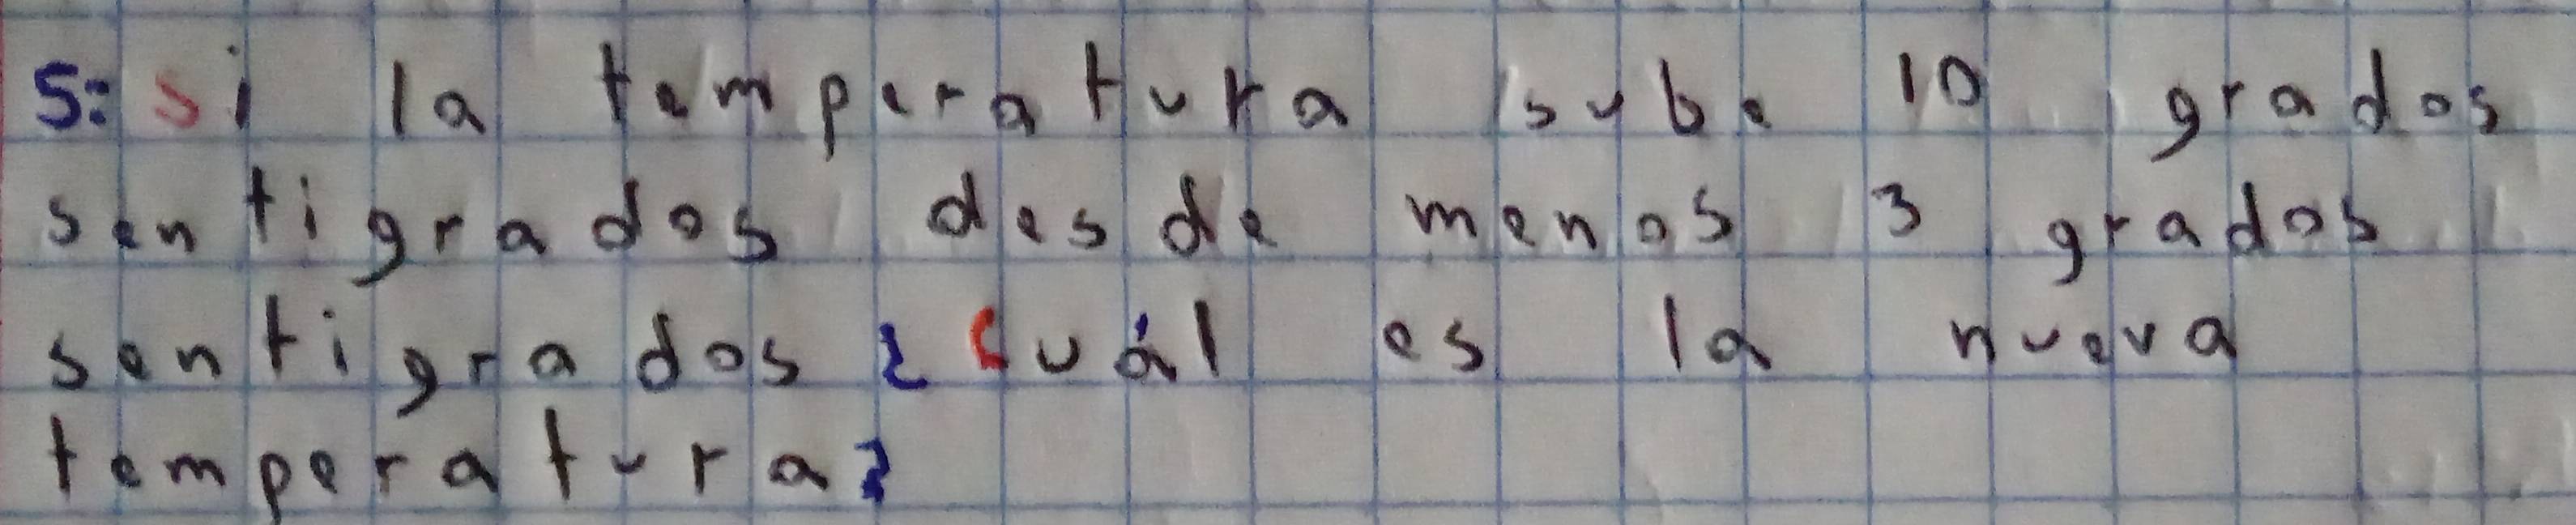 5: Si la temperatura sube 10 grados
sentigrados desde menos 3 grados
sentigrados ¿Cuál es la nueva
temperatura?